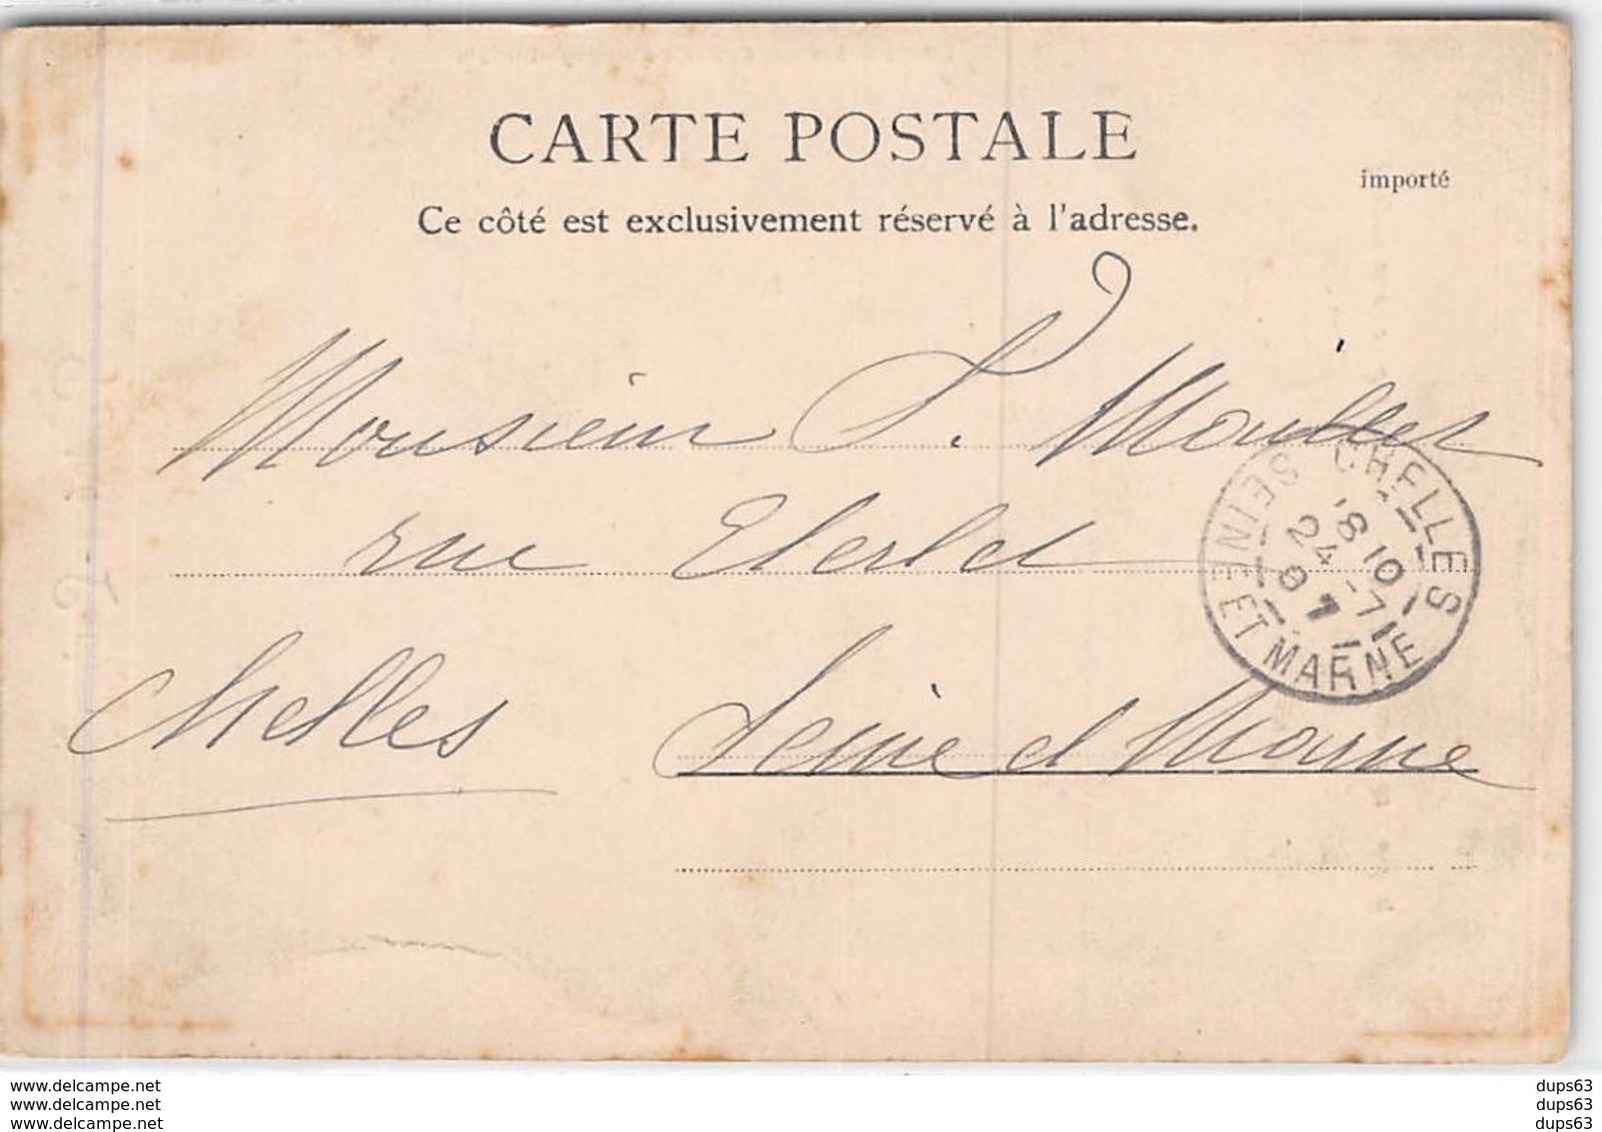 CARTE POSTALE
importé
Ce côté est exclusivement réservé à l'adresse.
Monsieur
rue
Chelles Seine et Marne
CHELLES
SEINE ET MARNE
8 10
24 -7
07
www.delcampe.net
www.delcampe.net
www.delcampe.net
dups63
dups63
dups63